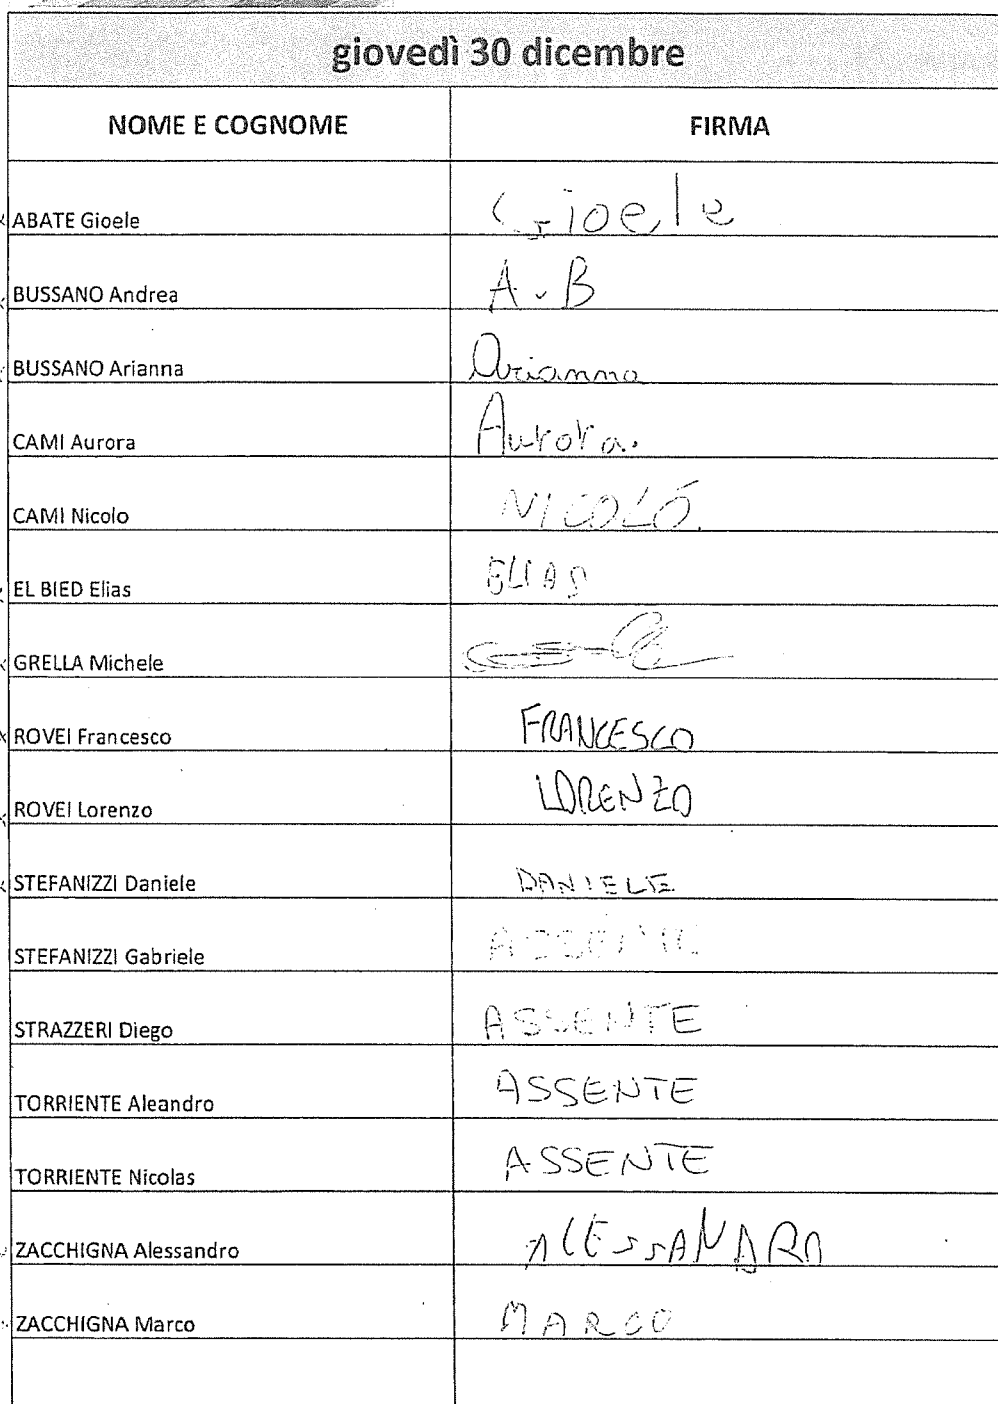 giovedì 30 dicembre
NOME E COGNOME FIRMA
ABATE Gioele Gioele
BUSSANO Andrea A.B
BUSSANO Arianna Arianna
CAMI Aurora Aurora.
CAMI Nicolo NICOLÓ
EL BIED Elias ELIAS
GRELLA Michele
ROVEI Francesco FRANCESCO
ROVEI Lorenzo LORENZO
STEFANIZZI Daniele DANIELE
STEFANIZZI Gabriele ASSENTE
STRAZZERI Diego ASSENTE
TORRIENTE Aleandro ASSENTE
TORRIENTE Nicolas ASSENTE
ZACCHIGNA Alessandro ALESSANDRO
ZACCHIGNA Marco MARCO